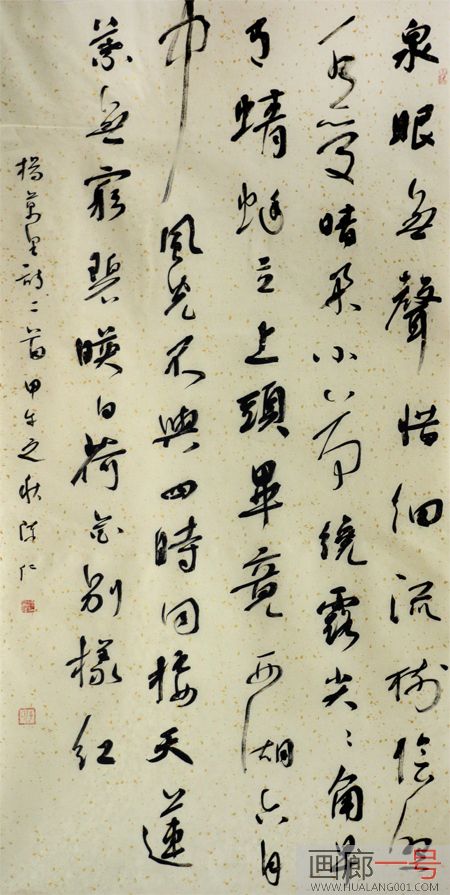 泉眼無聲惜細流樹陰照
水愛晴柔小荷纔露尖々角早
有蜻蜓立上頭畢竟西湖六月
中風光不與四時同接天蓮
葉無窮碧映日荷花別樣紅
楊萬里詩二首甲午之秋陳仁
画廊一号
WWW.HUALANG001.COM